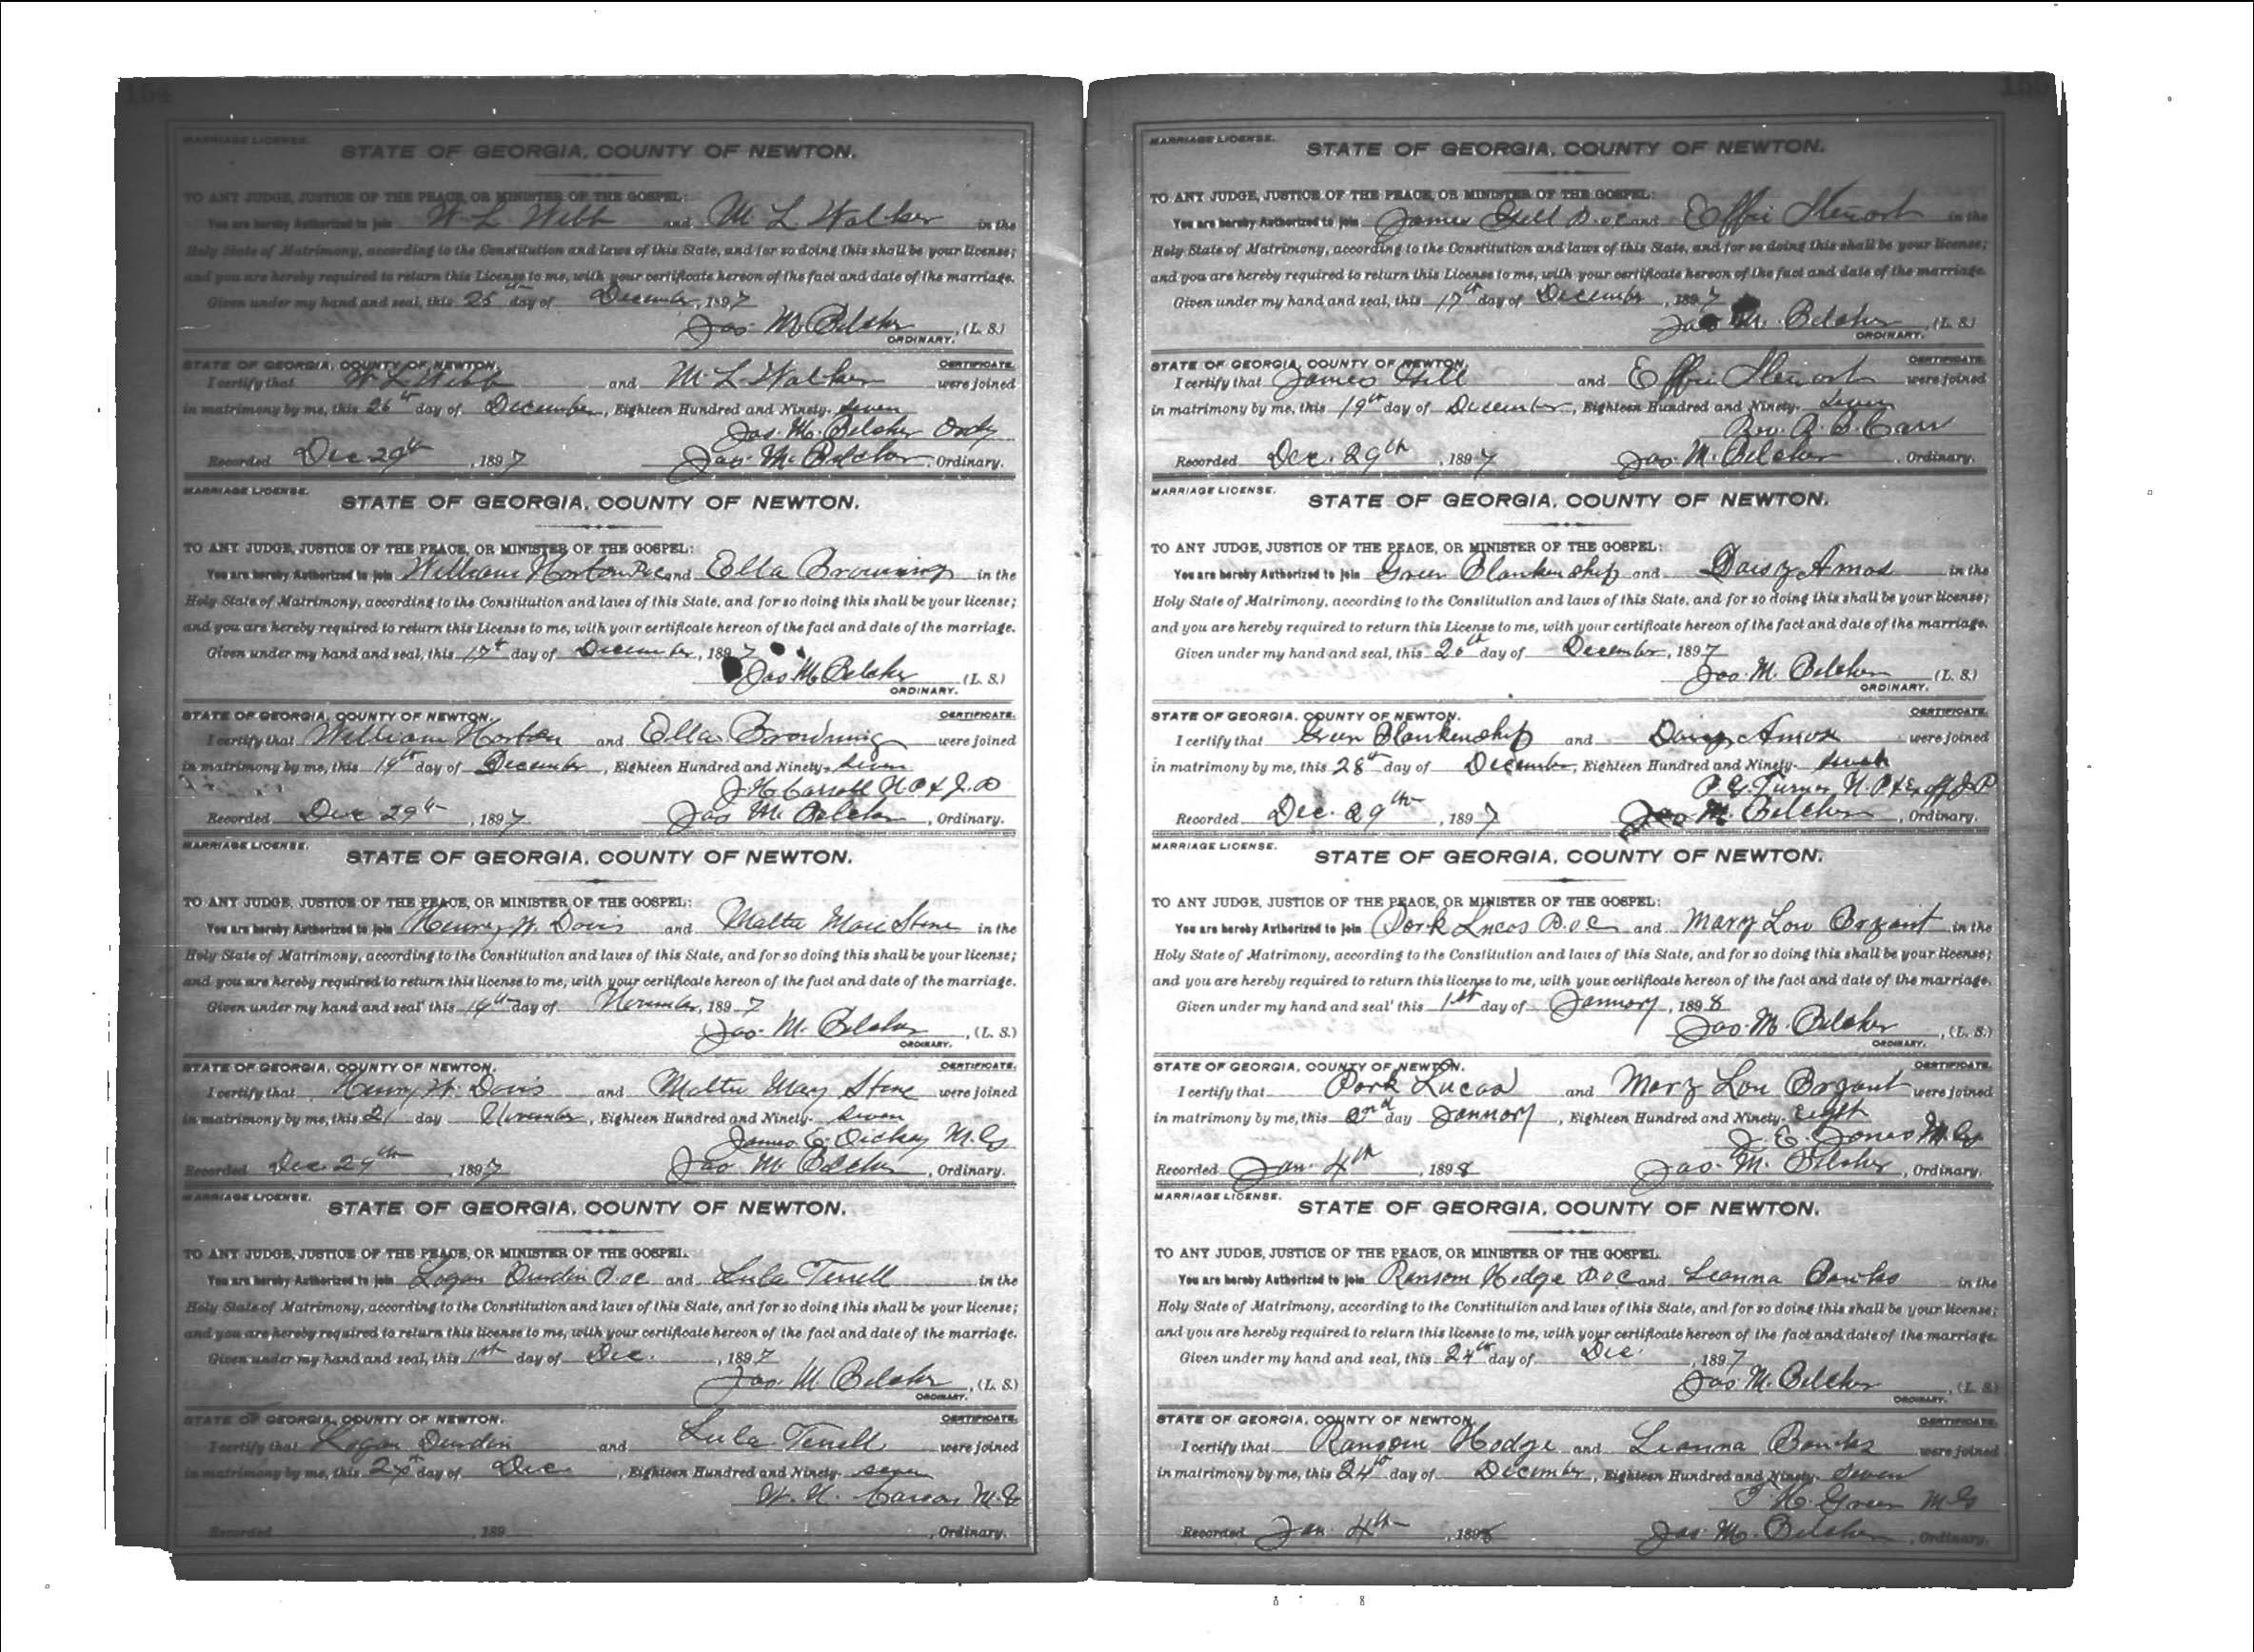 164
MARRIAGE LICENSE.
STATE OF GEORGIA, COUNTY OF NEWTON.
TO ANY JUDGE, JUSTICE OF THE PEACE, OR MINISTER OF THE GOSPEL:
You are hereby Authorized to join W L Webb and M L Walker in the
Holy State of Matrimony, according to the Constitution and laws of this State, and for so doing this shall be your license;
and you are hereby required to return this License to me, with your certificate hereon of the fact and date of the marriage.
Given under my hand and seal, this 25th day of December, 1897
Jas M Belcher, (L. S.)
ORDINARY.
STATE OF GEORGIA, COUNTY OF NEWTON. CERTIFICATE.
I certify that W L Webb and M. L. Walker were joined
in matrimony by me, this 26th day of December, Eighteen Hundred and Ninety-seven
Jas. M. Belcher Ordy
Recorded Dec 29th, 1897 Jas M. Belcher, Ordinary.
MARRIAGE LICENSE.
STATE OF GEORGIA, COUNTY OF NEWTON.
TO ANY JUDGE, JUSTICE OF THE PEACE, OR MINISTER OF THE GOSPEL:
You are hereby Authorized to join William Horton and Ella Browning in the
Holy State of Matrimony, according to the Constitution and laws of this State, and for so doing this shall be your license;
and you are hereby required to return this License to me, with your certificate hereon of the fact and date of the marriage.
Given under my hand and seal, this 17th day of December, 1897
Jas M Belcher (L. S.)
ORDINARY.
STATE OF GEORGIA, COUNTY OF NEWTON. CERTIFICATE.
I certify that William Horton and Ella Browning were joined
in matrimony by me, this 19th day of December, Eighteen Hundred and Ninety-seven
J H Carroll
Recorded Dec 29th, 1897 Jas M. Belcher, Ordinary.
MARRIAGE LICENSE.
STATE OF GEORGIA, COUNTY OF NEWTON.
TO ANY JUDGE, JUSTICE OF THE PEACE, OR MINISTER OF THE GOSPEL:
You are hereby Authorized to join Henry W. Davis and Stone in the
Holy State of Matrimony, according to the Constitution and laws of this State, and for so doing this shall be your license;
and you are hereby required to return this license to me, with your certificate hereon of the fact and date of the marriage.
Given under my hand and seal this day of November, 1897
Jas. M. Belcher, (L. S.)
ORDINARY.
STATE OF GEORGIA, COUNTY OF NEWTON. CERTIFICATE.
I certify that Henry W. Davis and May Stone were joined
in matrimony by me, this 21 day November, Eighteen Hundred and Ninety-seven
James E. Dickey M. G
Recorded Dec 29th, 1897 Jas M Belcher, Ordinary.
MARRIAGE LICENSE.
STATE OF GEORGIA, COUNTY OF NEWTON.
TO ANY JUDGE, JUSTICE OF THE PEACE, OR MINISTER OF THE GOSPEL.
You are hereby Authorized to join Logan Durden P.O.C and Lula Terrell in the
Holy State of Matrimony, according to the Constitution and laws of this State, and for so doing this shall be your license;
and you are hereby required to return this license to me, with your certificate hereon of the fact and date of the marriage.
Given under my hand and seal, this 1st day of Dec., 1897
Jas. M Belcher, (L. S.)
ORDINARY.
STATE OF GEORGIA, COUNTY OF NEWTON. CERTIFICATE.
I certify that Logan Durden and Lula Terrell were joined
in matrimony by me, this day of Dec, Eighteen Hundred and Ninety-seven
M.G
Recorded, 189, Ordinary.
MARRIAGE LICENSE.
STATE OF GEORGIA, COUNTY OF NEWTON.
TO ANY JUDGE, JUSTICE OF THE PEACE, OR MINISTER OF THE GOSPEL:
You are hereby Authorized to join James Gill P.O.C and Effie Stewart in the
Holy State of Matrimony, according to the Constitution and laws of this State, and for so doing this shall be your license;
and you are hereby required to return this License to me, with your certificate hereon of the fact and date of the marriage.
Given under my hand and seal, this 17th day of December, 1897
Jas M. Belcher, (L. S.)
ORDINARY.
STATE OF GEORGIA, COUNTY OF NEWTON. CERTIFICATE.
I certify that James Gill and Effie Stewart were joined
in matrimony by me, this 19th day of December, Eighteen Hundred and Ninety-seven
Rev. A. B. Carr
Recorded Dec. 29th, 1897 Jas. M. Belcher, Ordinary.
MARRIAGE LICENSE.
STATE OF GEORGIA, COUNTY OF NEWTON.
TO ANY JUDGE, JUSTICE OF THE PEACE, OR MINISTER OF THE GOSPEL:
You are hereby Authorized to join Green Blankenship and Daisy Amos in the
Holy State of Matrimony, according to the Constitution and laws of this State, and for so doing this shall be your license;
and you are hereby required to return this License to me, with your certificate hereon of the fact and date of the marriage.
Given under my hand and seal, this 26th day of December, 1897
Jas. M. Belcher (L. S.)
ORDINARY.
STATE OF GEORGIA, COUNTY OF NEWTON. CERTIFICATE.
I certify that Green Blankenship and Daisy Amos were joined
in matrimony by me, this 28th day of December, Eighteen Hundred and Ninety-seven
Turner N. P & Ex off J P
Recorded Dec. 29th, 1897 Jas M. Belcher, Ordinary.
MARRIAGE LICENSE.
STATE OF GEORGIA, COUNTY OF NEWTON.
TO ANY JUDGE, JUSTICE OF THE PEACE, OR MINISTER OF THE GOSPEL:
You are hereby Authorized to join Dork Lucas P.O.C and Mary Lou Bryant in the
Holy State of Matrimony, according to the Constitution and laws of this State, and for so doing this shall be your license;
and you are hereby required to return this license to me, with your certificate hereon of the fact and date of the marriage.
Given under my hand and seal this 1st day of January, 1898
Jas. M. Belcher, (L. S.)
ORDINARY.
STATE OF GEORGIA, COUNTY OF NEWTON. CERTIFICATE.
I certify that Dork Lucas and Mary Lou Bryant were joined
in matrimony by me, this 2nd day January, Eighteen Hundred and Ninety-Eight
J. E. Jones M. G
Recorded Jan. 4th, 1898 Jas. M. Belcher, Ordinary.
MARRIAGE LICENSE.
STATE OF GEORGIA, COUNTY OF NEWTON.
TO ANY JUDGE, JUSTICE OF THE PEACE, OR MINISTER OF THE GOSPEL.
You are hereby Authorized to join Ransom Hodge P.O.C and Leanna Banks in the
Holy State of Matrimony, according to the Constitution and laws of this State, and for so doing this shall be your license;
and you are hereby required to return this license to me, with your certificate hereon of the fact and date of the marriage.
Given under my hand and seal, this 24th day of Dec., 1897
Jas M. Belcher, (L. S.)
ORDINARY.
STATE OF GEORGIA, COUNTY OF NEWTON. CERTIFICATE.
I certify that Ransom Hodge and Leanna Banks were joined
in matrimony by me, this 24th day of December, Eighteen Hundred and Ninety-seven
Green M G
Recorded Jan. 4th, 1898 Jas. M. Belcher, Ordinary.